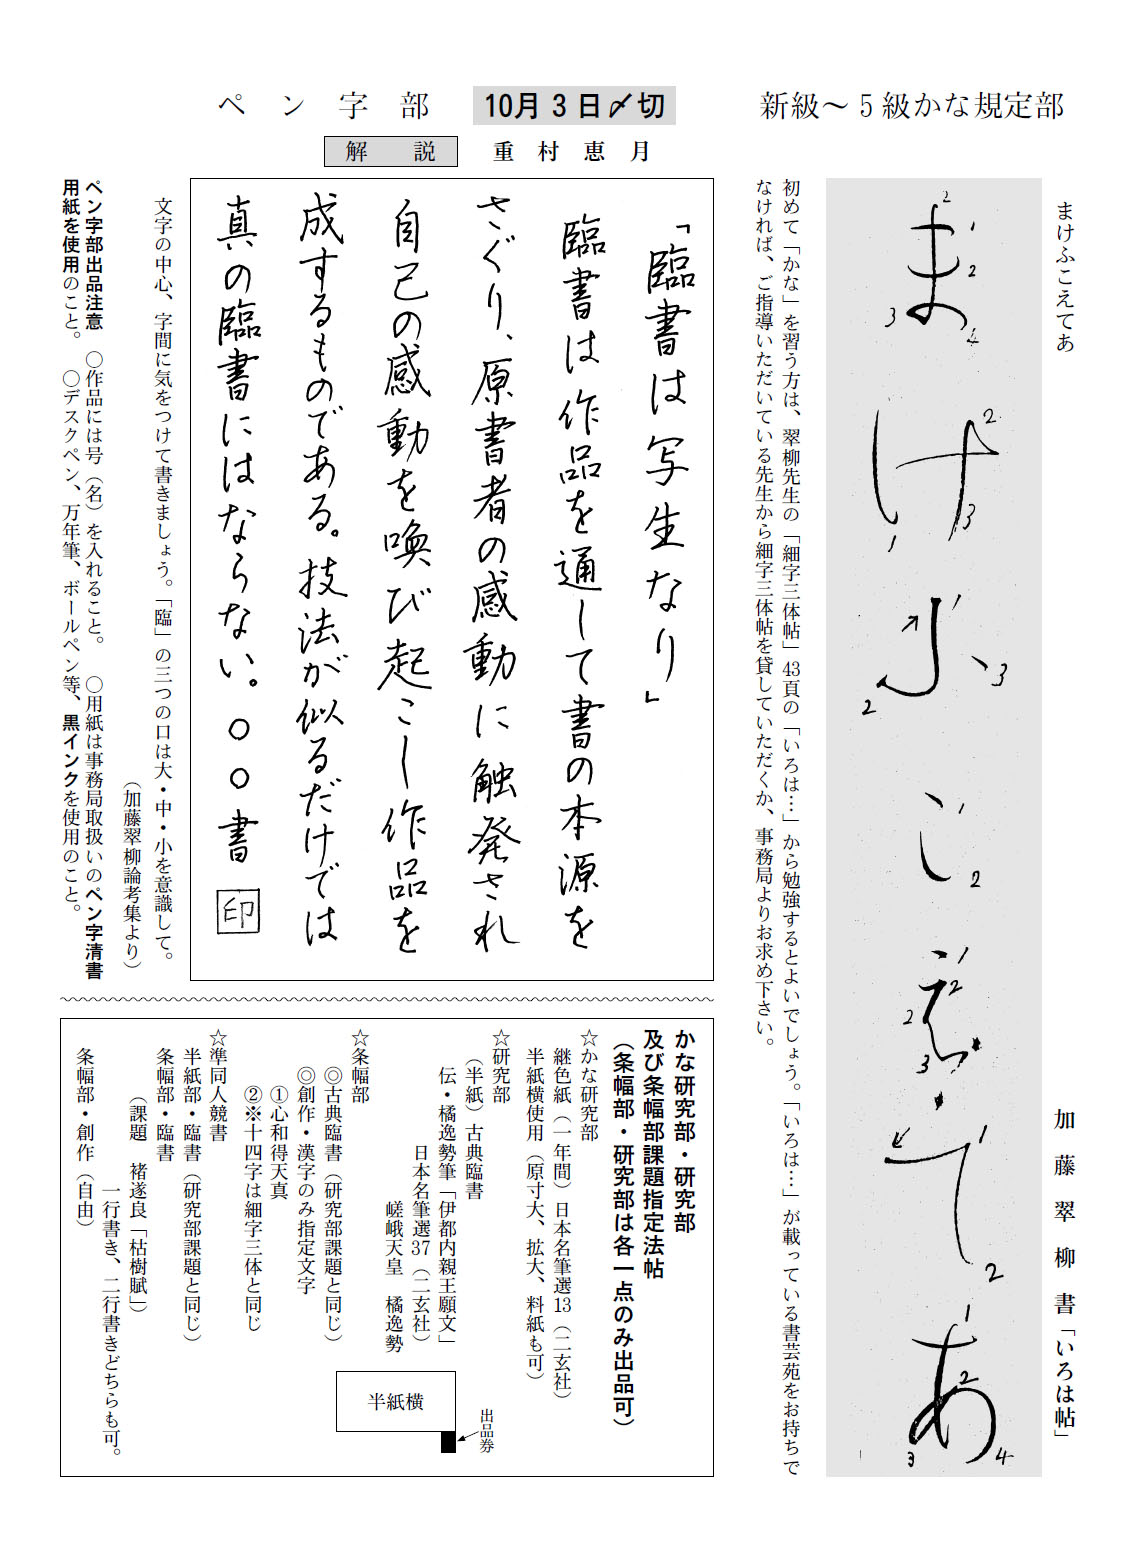 新級～5級かな規定部
まけふこえてあ
加藤翠柳書「いろは帖」
まけふこえてあ
初めて「かな」を習う方は、翠柳先生の「細字三体帖」43頁の「いろは…」から勉強するとよいでしょう。「いろは…」が載っている書芸苑をお持ちで
なければ、ご指導いただいている先生から細字三体帖を貸していただくか、事務局よりお求め下さい。
ペン字部
10月3日〆切
解説
重村恵月
「臨書は写生なり」
臨書は作品を通して書の本源を
さぐり、原書者の感動に触発され
自己の感動を喚び起こし作品を
成するものである。技法が似るだけでは
真の臨書にはならない。○○書 印
文字の中心、字間に気をつけて書きましょう。「臨」の三つの口は大・中・小を意識して。
（加藤翠柳論考集より）
ペン字部出品注意 ○作品には号（名）を入れること。 ○用紙は事務局取扱いのペン字清書
用紙を使用のこと。 ○デスクペン、万年筆、ボールペン等、黒インクを使用のこと。
かな研究部・研究部
及び条幅部課題指定法帖
（条幅部・研究部は各一点のみ出品可）
☆かな研究部
継色紙（一年間）日本名筆選13（二玄社）
半紙横使用（原寸大、拡大、料紙も可）
☆研究部
（半紙）古典臨書
伝・橘逸勢筆「伊都内親王願文」
日本名筆選37（二玄社）
嵯峨天皇 橘逸勢
☆条幅部
◎古典臨書（研究部課題と同じ）
◎創作・漢字のみ指定文字
①心和得天真
②※十四字は細字三体と同じ
☆準同人競書
半紙部・臨書（研究部課題と同じ）
条幅部・臨書
（課題 褚遂良「枯樹賦」）
一行書き、二行書きどちらも可。
条幅部・創作（自由）
半紙横
出品券